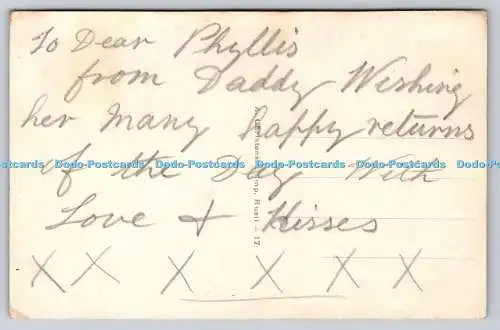 To Dear Phyllis
from Daddy Wishing
her Many happy returns
of the Day With
Love & Kisses
X X X X X X
Dodo-Postcards Dodo-Postcards Dodo-Postcards Dodo-Postcards Dodo-Postcards Dodo-Postcards
Imp. Rueil - 17